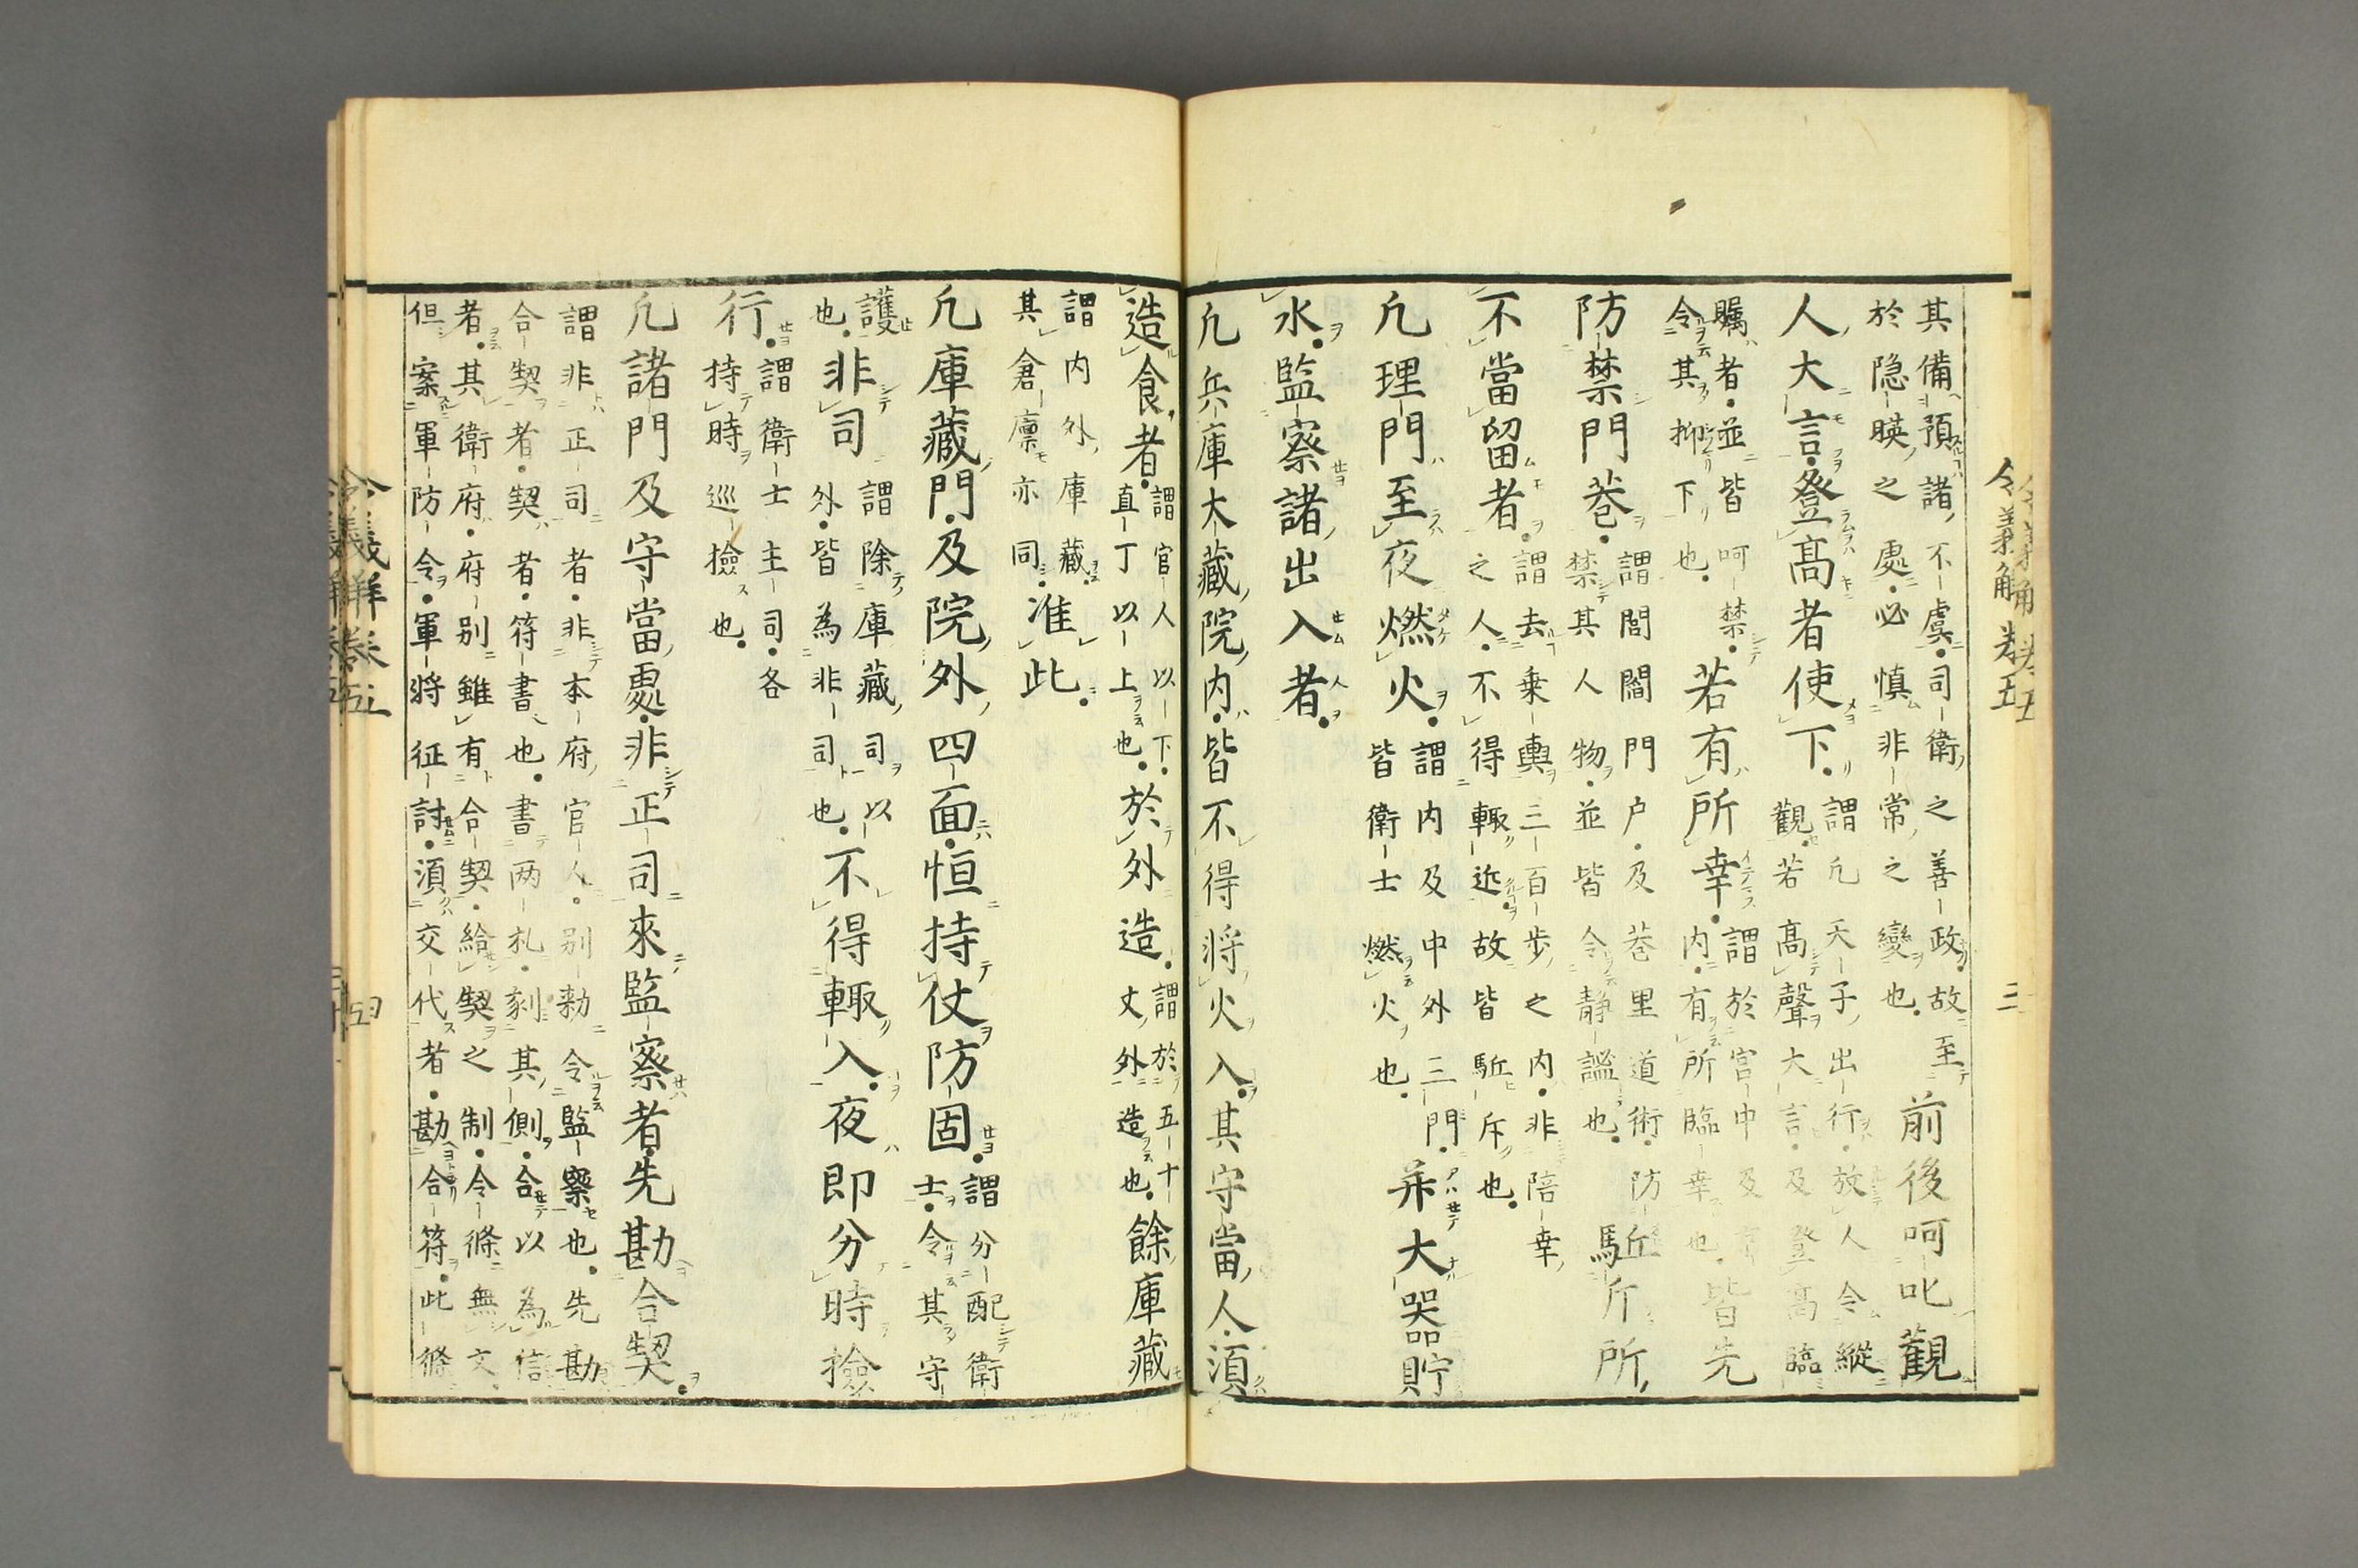 其備預諸不虞司衛之善政故至
於隠暎之處必慎非常之變也
前後呵叱觀
人大言登髙者使下
謂凢天子出行放人令縱
觀若髙聲大言及登髙臨
矚者並皆呵禁
令其抑下也
若有所幸
謂於宮中及京
内有所臨幸也
皆先
防禁門巷
謂閭閻門户及巷里道術防
禁其人物並皆令静謐也
駈斤所
不當留者
謂去乗輿三百歩之内非陪幸
之人不得輙近故皆駈斥也
凢理門至夜燃火
謂内及中外三門
皆衛士燃火也
并大器貯
水監察諸出入者
凢兵庫大藏院内皆不得将火入其守當人須
造食者
謂官人以下
直丁以上也
於外造
謂於五十
丈外造也
餘庫藏
謂内外庫藏
其倉廪亦同
准此
凢庫藏門及院外四面恒持仗防固
謂分配衛
士令其守
護
也
非司
謂除庫藏司以
外皆為非司也
不得輙入夜即分時撿
行
謂衛士主司各
持時巡撿也
凢諸門及守當處非正司來監察者先勘合契
謂非正司者非本府官人别勅令監察也先勘
合契者契者符書也書两札刻其側合以為信
者其衛府府别雖有合契給契之制令條無文
但案軍防令軍将征討須交代者勘合符此條
令義解巻五